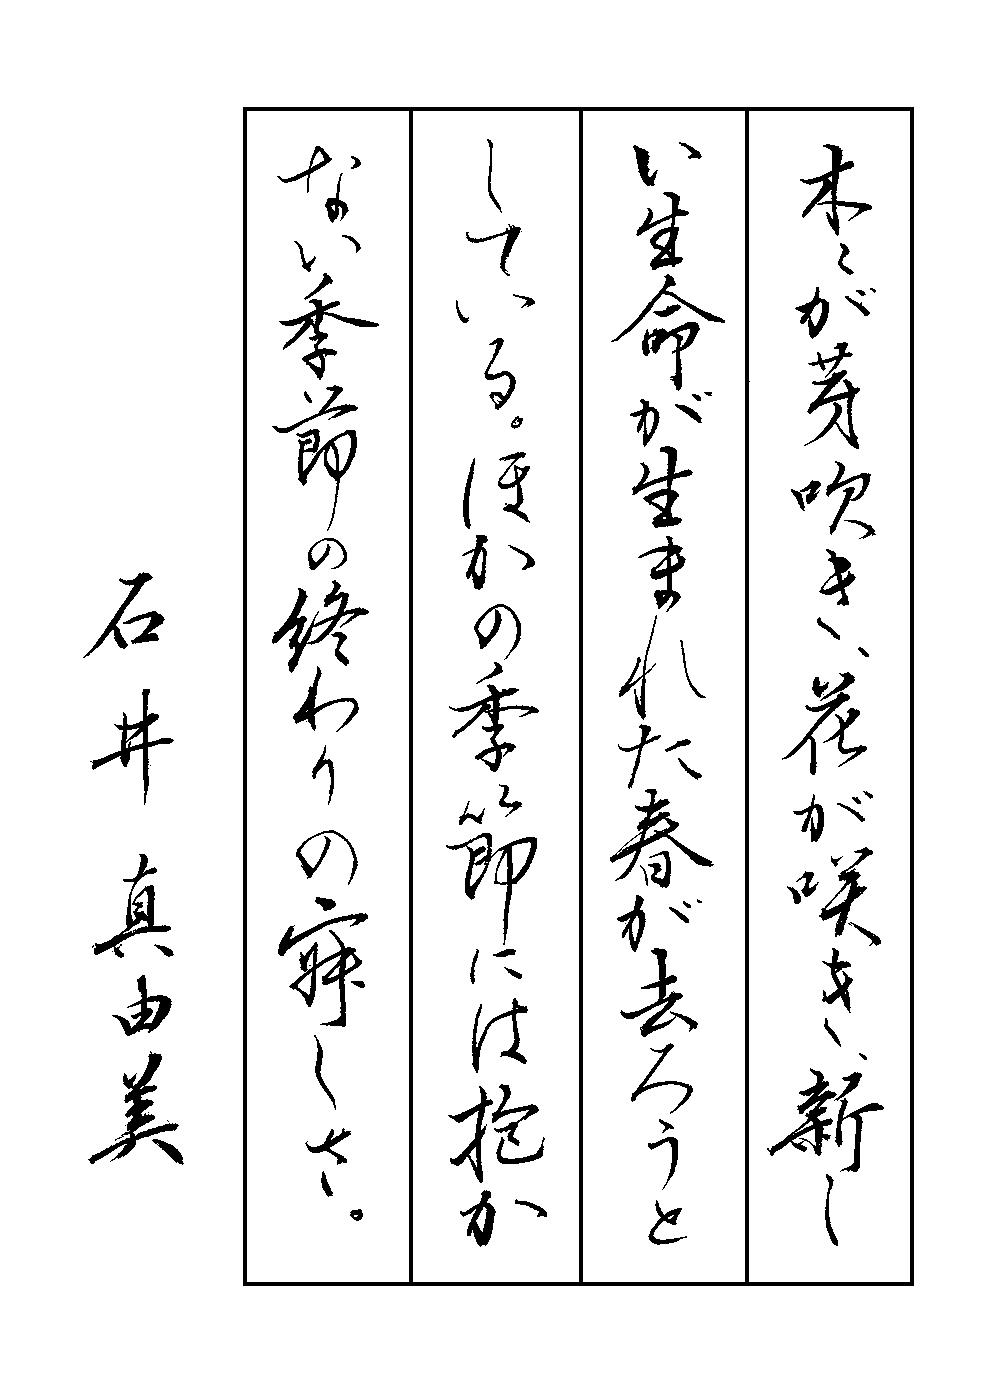 木々が芽吹き、花が咲き、新し
い生命が生まれた春が去ろうと
している。ほかの季節には抱か
ない季節の終わりの寂しさ。
石井真由美